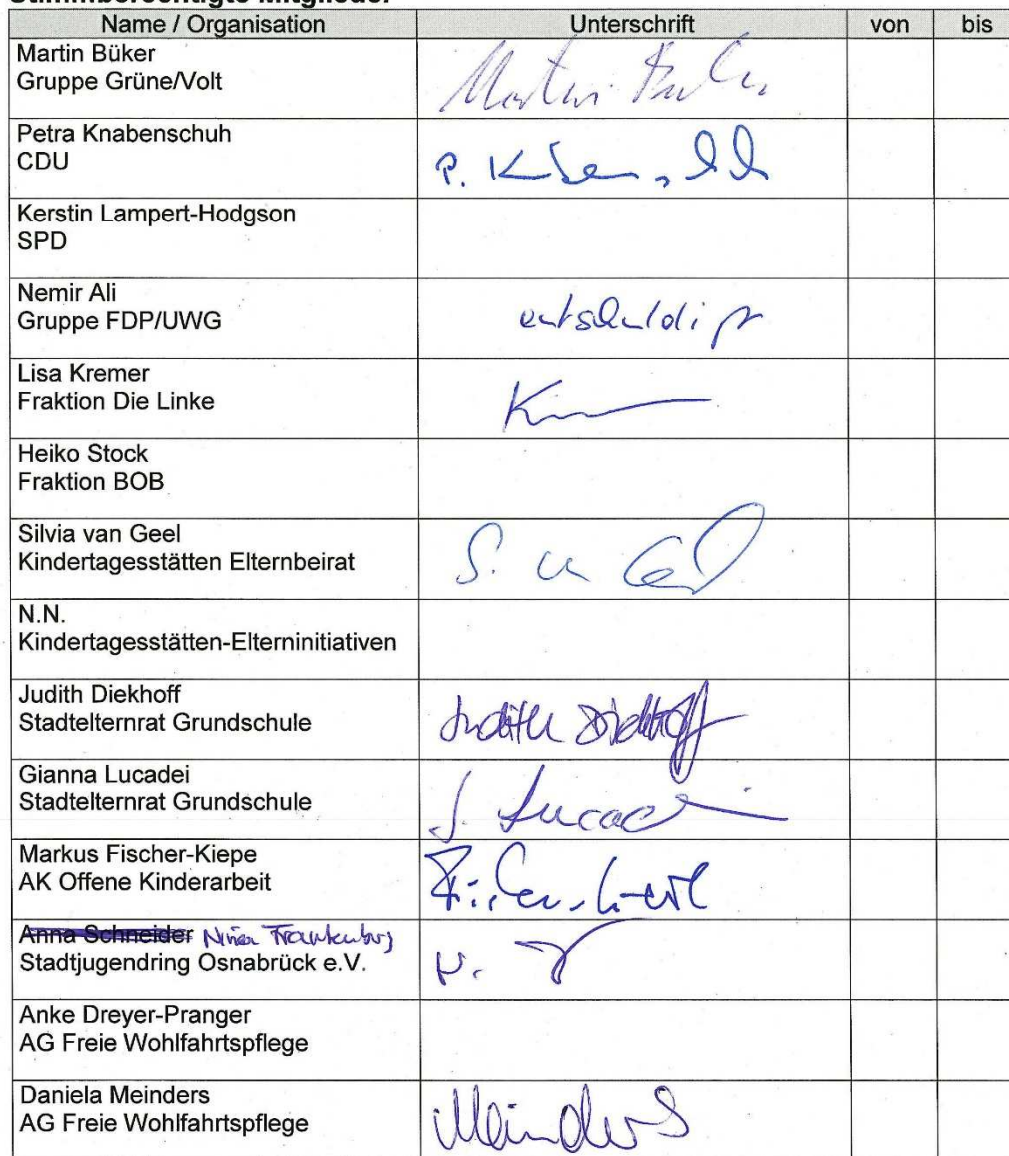 Stimmberechtigte Mitglieder
Name / Organisation Unterschrift von bis
Martin Büker
Gruppe Grüne/Volt
Martin
Petra Knabenschuh
CDU
P.
Kerstin Lampert-Hodgson
SPD
Nemir Ali
Gruppe FDP/UWG
entschuldigt
Lisa Kremer
Fraktion Die Linke
Heiko Stock
Fraktion BOB
Silvia van Geel
Kindertagesstätten Elternbeirat
S.
N.N.
Kindertagesstätten-Elterninitiativen
Judith Diekhoff
Stadtelternrat Grundschule
Judith Diekhoff
Gianna Lucadei
Stadtelternrat Grundschule
Lucadei
Markus Fischer-Kiepe
AK Offene Kinderarbeit
Anna Schneider Frankenburg
Stadtjugendring Osnabrück e.V.
Anke Dreyer-Pranger
AG Freie Wohlfahrtspflege
Daniela Meinders
AG Freie Wohlfahrtspflege
Meinders